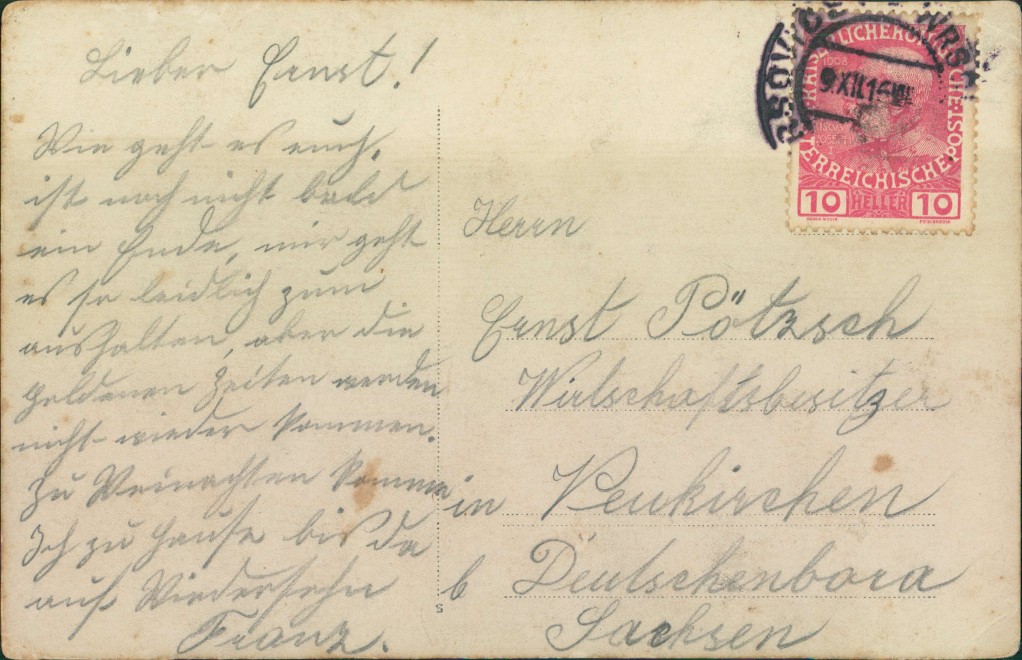 Lieber Ernst!
Wie geht es euch,
ist noch nicht bald
ein Ende, mir geht
es so leidlich zum
aushalten, aber die
goldenen Zeiten werden
nicht wieder kommen.
Zu Weinachten komme
Ich zu Hause bis da
auf Wiedersehn
Franz.
9.XII.15
1908
ÖSTERREICHISCHE POST
10 HELLER 10
Herrn
Ernst Pötzsch
Wirtschaftsbesitzer
in Neukirchen
b Deutschenbora
Sachsen
S